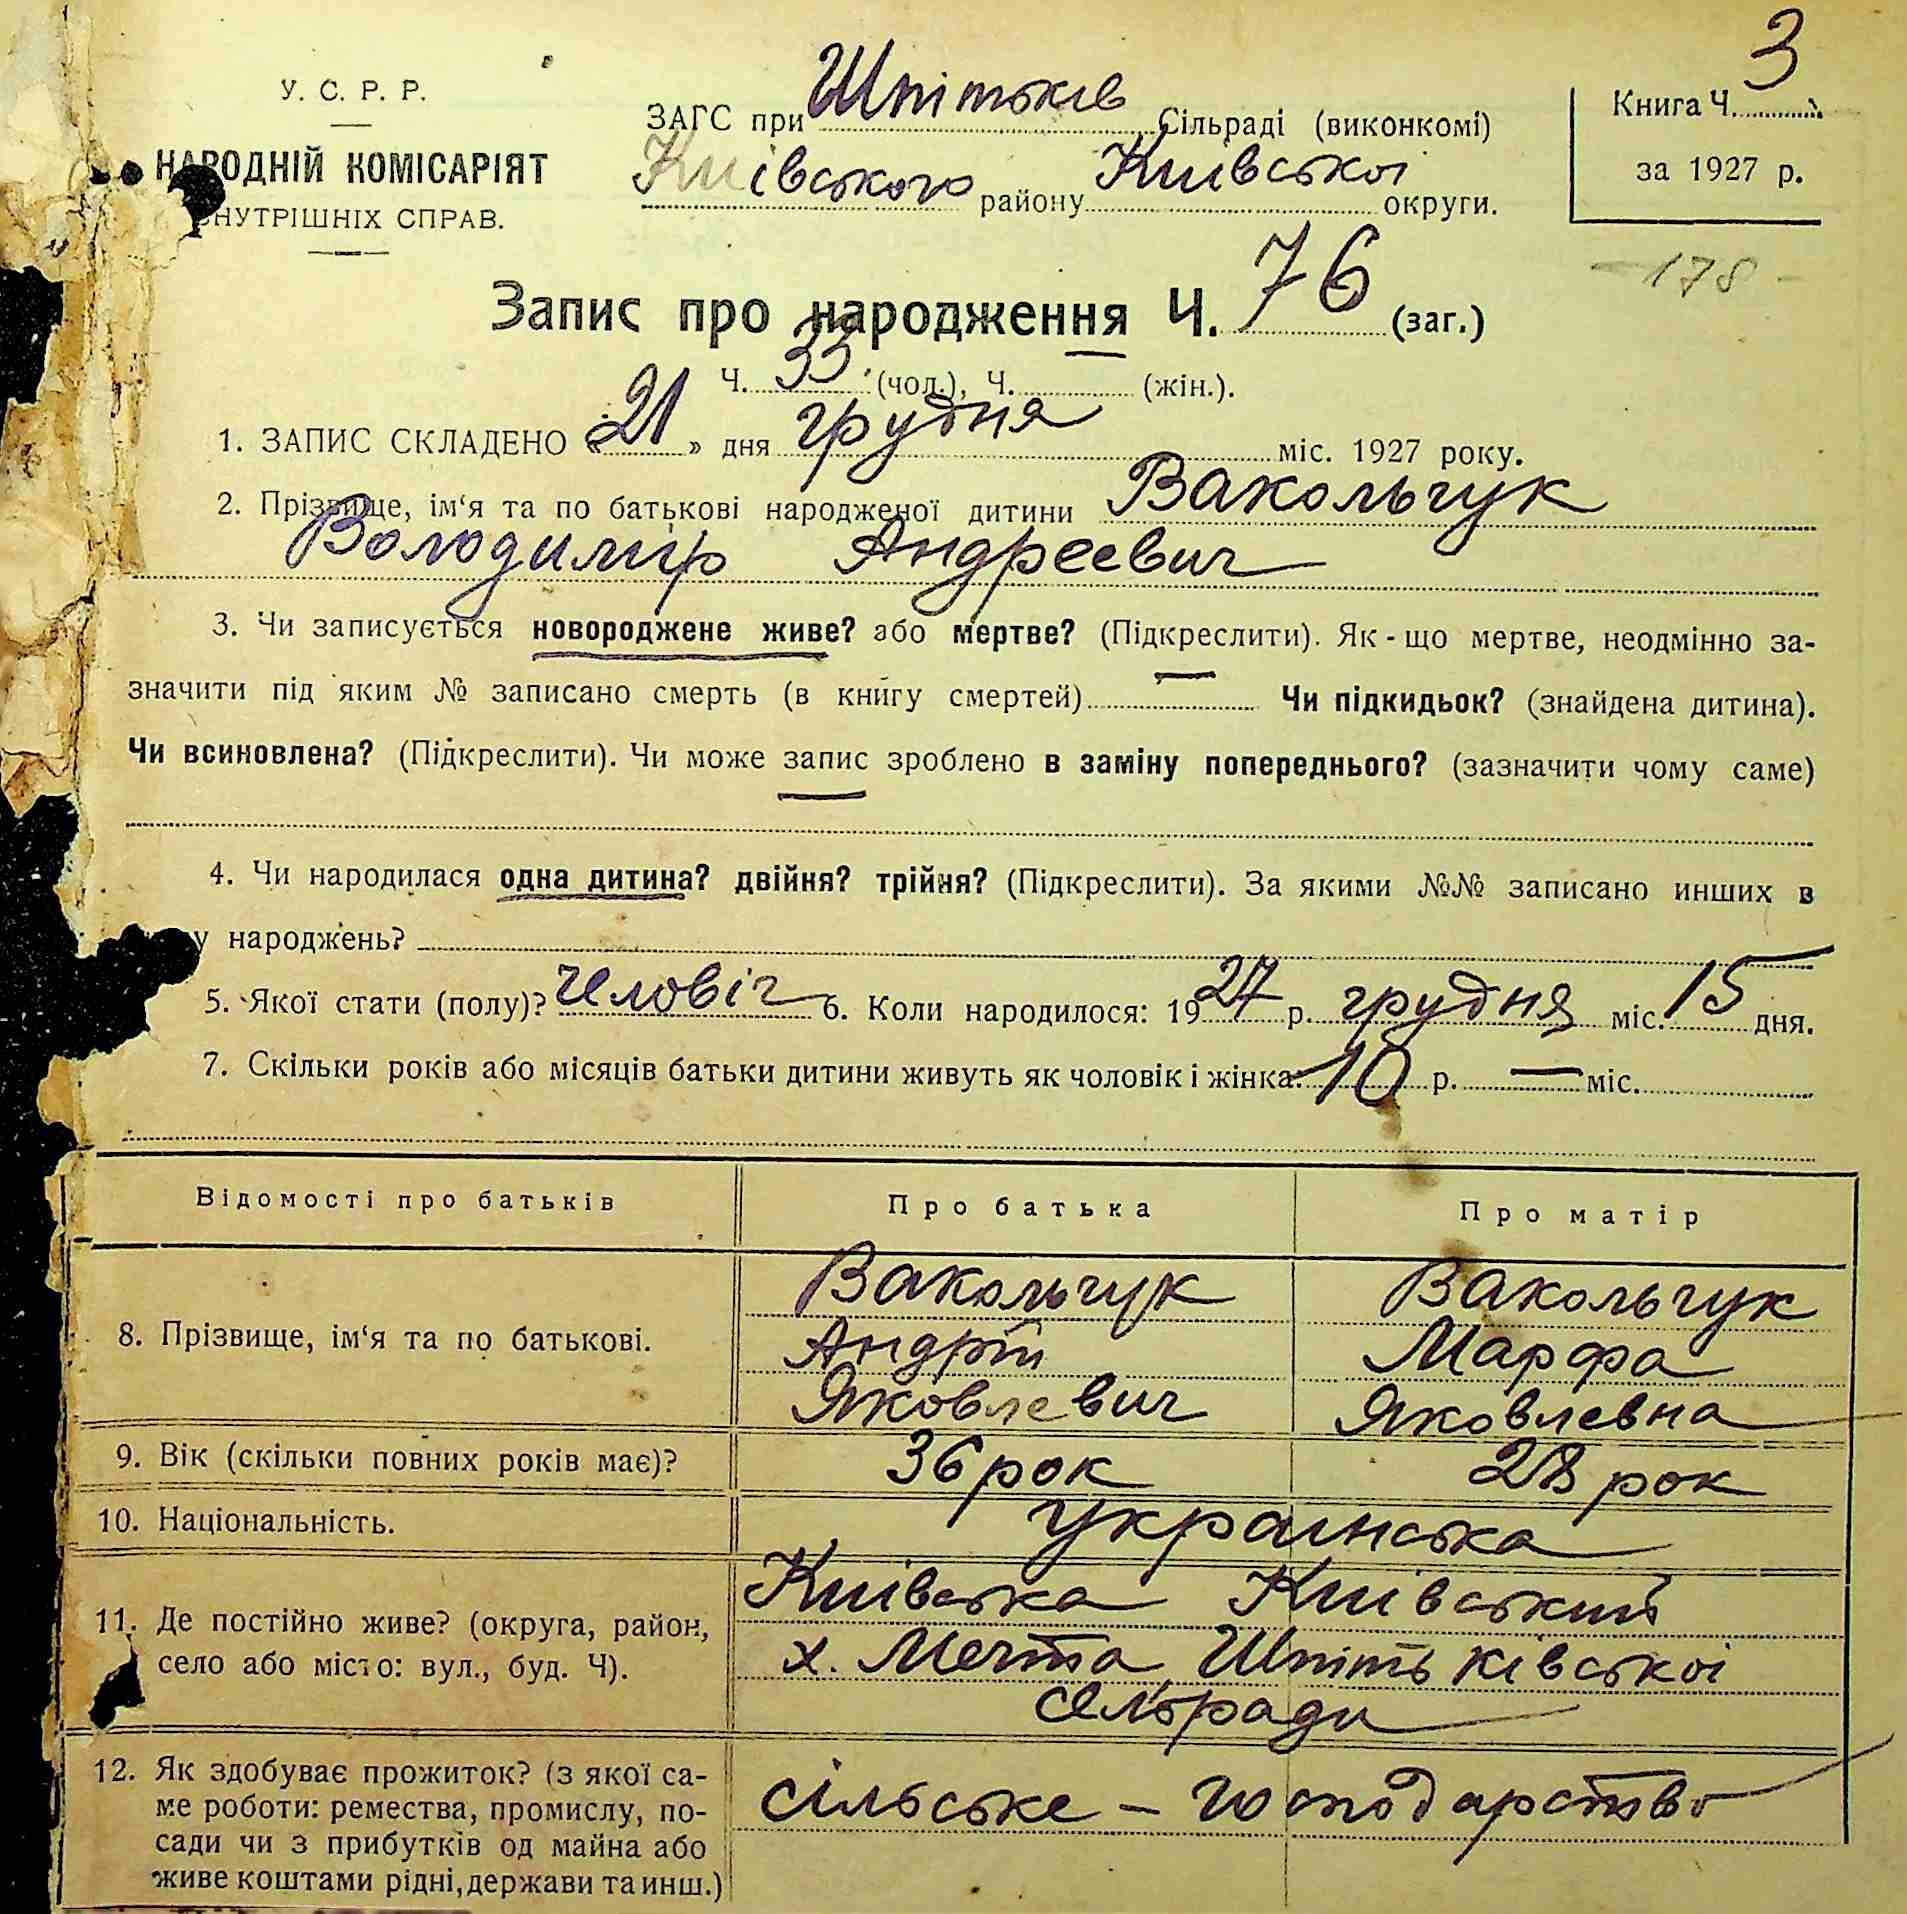 3
У. С. Р. Р.
НАРОДНІЙ КОМІСАРІЯТ
ВНУТРІШНІХ СПРАВ.
ЗАГС при Шпітьків Сільраді (виконкомі)
Київського району Київської округи.
Книга Ч.
за 1927 р.
- 178 -
Запис про народження Ч. 76 (заг.)
Ч. 33 (чол.), Ч. (жін.).
1. ЗАПИС СКЛАДЕНО « 21 » дня грудня міс. 1927 року.
2. Прізвище, ім‘я та по батькові народженої дитини Вакольчук
Володимір Андреевич
3. Чи записується новороджене живе? або мертве? (Підкреслити). Як - що мертве, неодмінно за-
значити під яким № записано смерть (в книгу смертей) — Чи підкидьок? (знайдена дитина).
Чи всиновлена? (Підкреслити). Чи може запис зроблено в заміну попереднього? (зазначити чому саме)
4. Чи народилася одна дитина? двійня? трійня? (Підкреслити). За якими №№ записано инших в
у народжень?
5. Якої стати (полу)? Человіч 6. Коли народилося: 1927 р. грудня міс. 15 дня.
7. Скільки років або місяців батьки дитини живуть як чоловік і жінка: 10 р. — міс.
Відомості про батьків Про батька Про матір
8. Прізвище, ім‘я та по батькові.
Вакольчук Вакольчук
Андрій Марфа
Яковлевич Яковлевна
9. Вік (скільки повних років має)? 36 рок 28 рок
10. Національність. українська
11. Де постійно живе? (округа, район,
село або місто: вул., буд. Ч).
Київська Київський
х. Мечта Шпітьківської
сільради
12. Як здобуває прожиток? (з якої са-
ме роботи: ремества, промислу, по-
сади чи з прибутків од майна або
живе коштами рідні, держави та инш.)
сільське - господарство